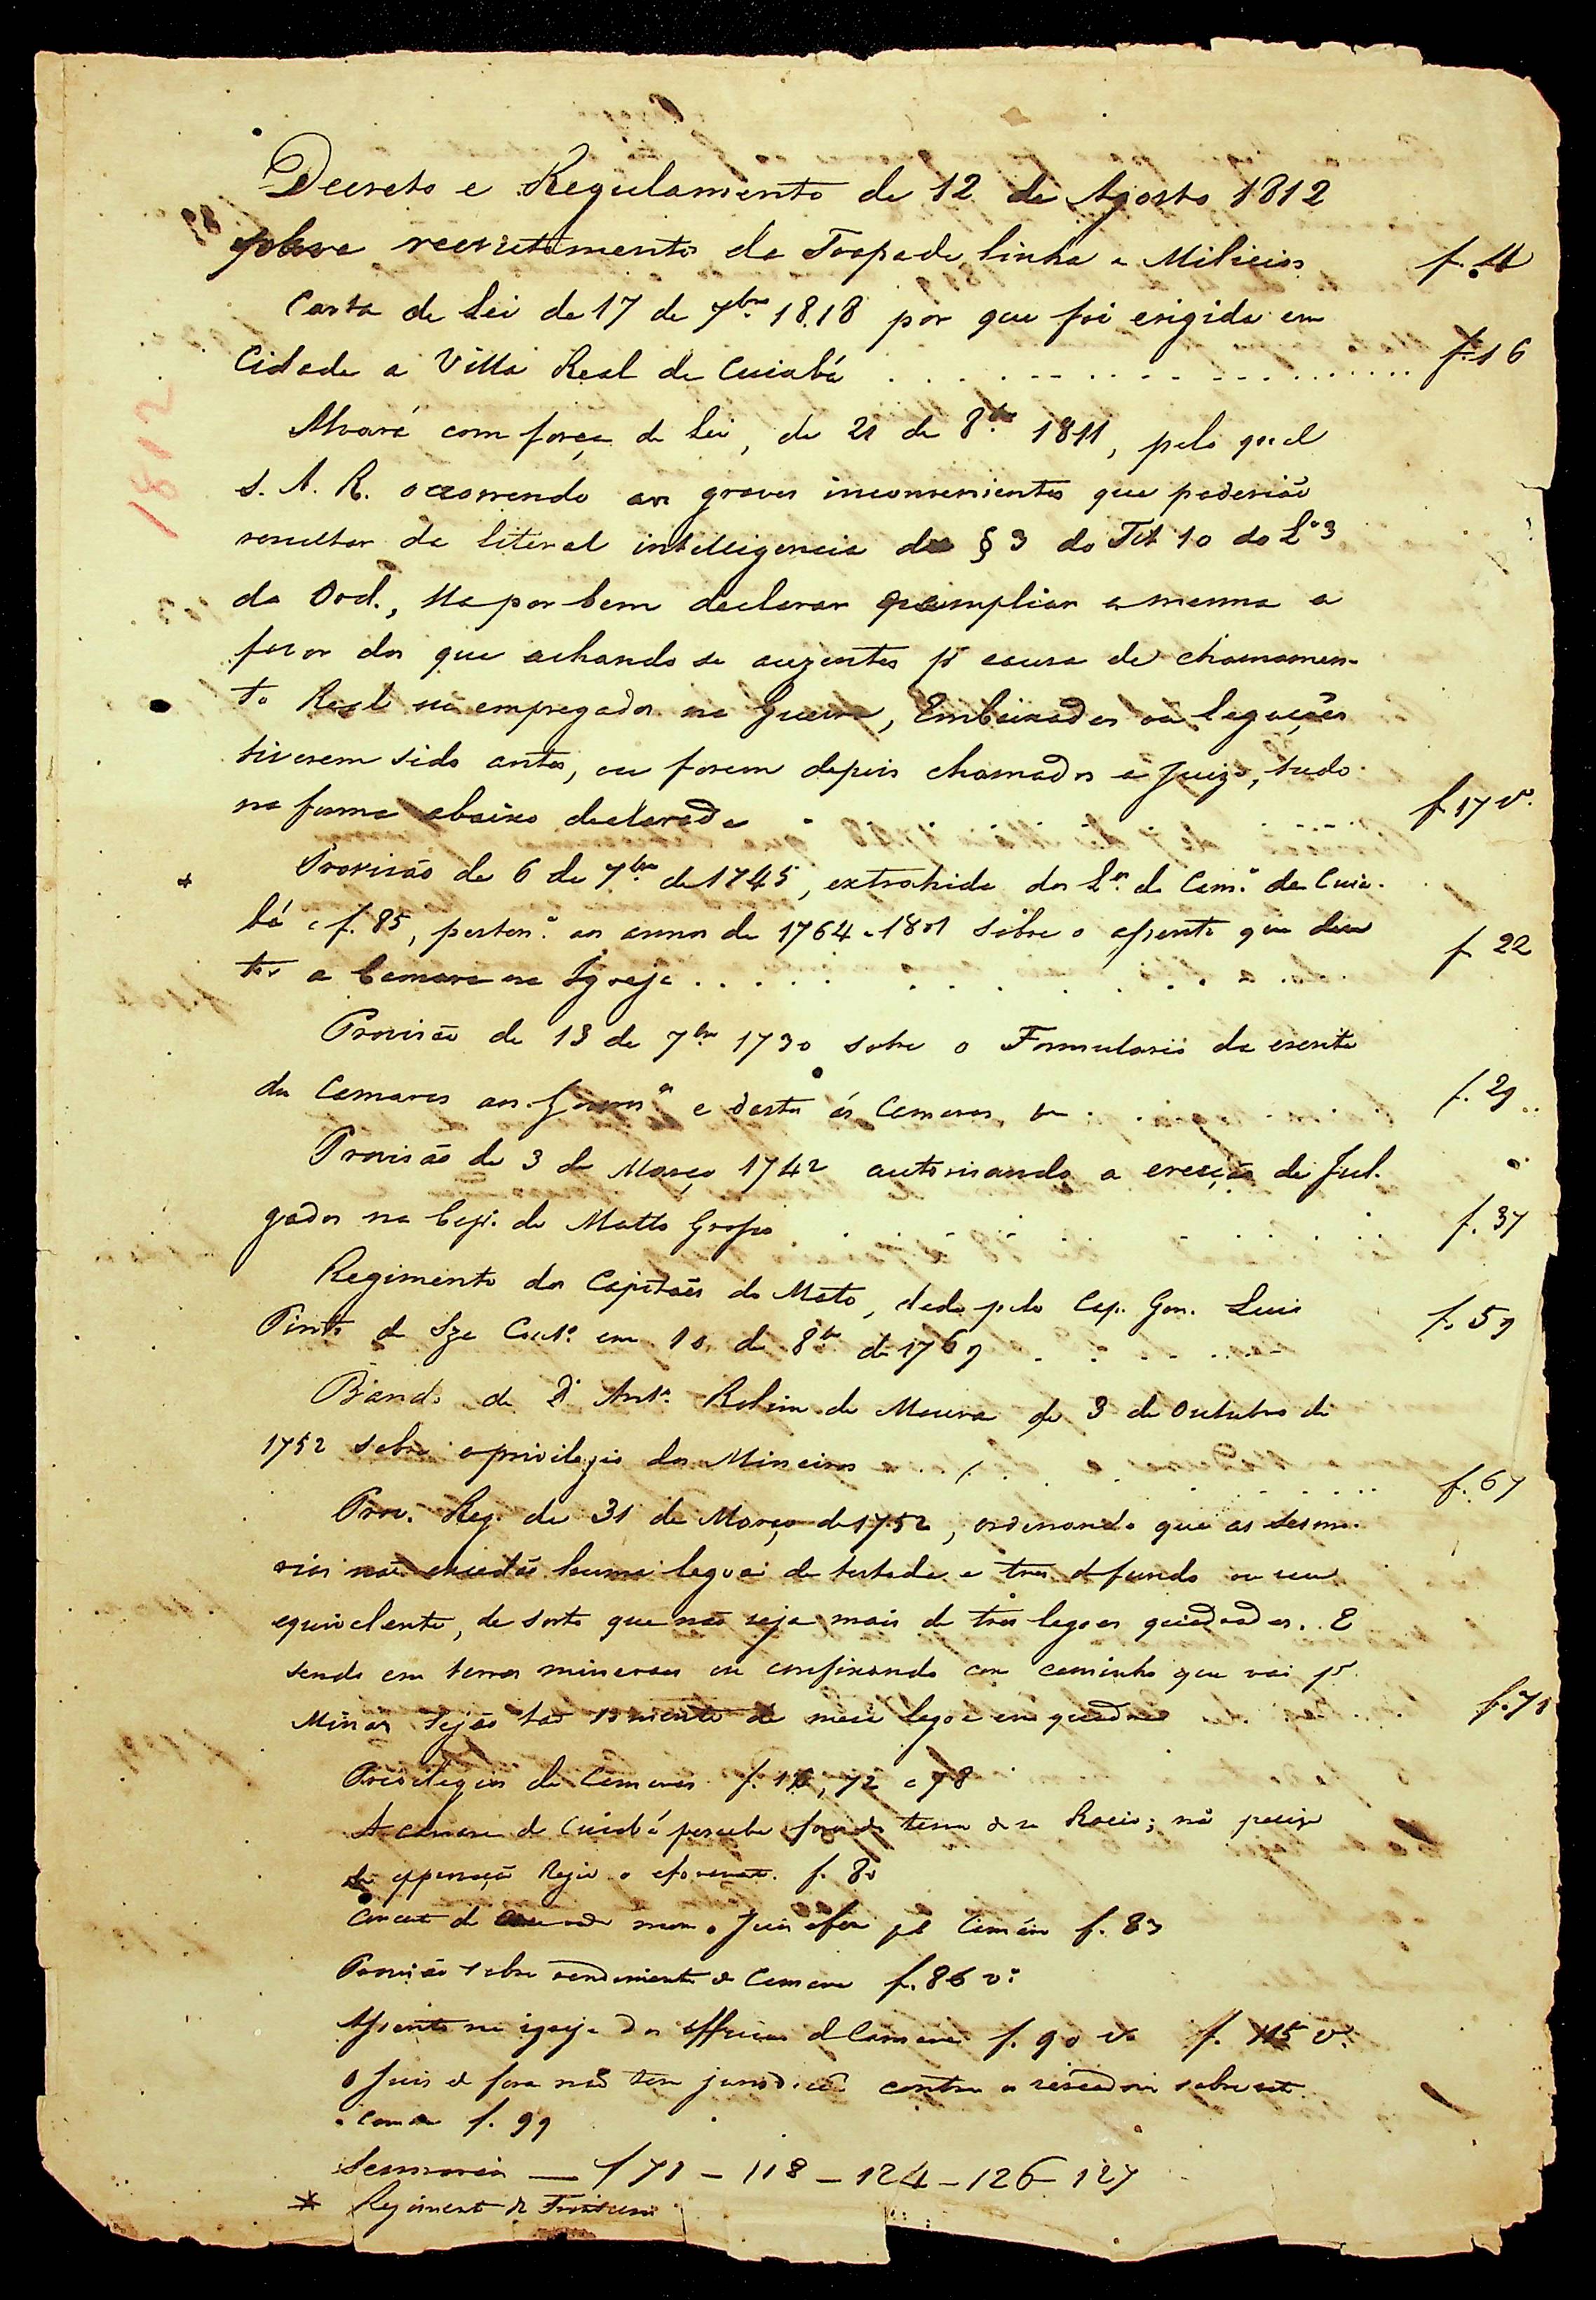 Decreto e Regulamento de 12 de Agosto 1812
sobre recrutamento da Tropa de linha e Milicias f. 4
Carta de Lei de 17 de 7bro 1818 por que foi erigida em
Cidade a Villa Real de Cuiabá f. 16
1812
Alvará com força de Lei, de 21 de 8bro 1811, pelo qual
S. A. R. occorrendo aos graves inconvenientes que poderião
resultar da literal intelligencia do § 3 do Tit 10 do Lo 3
da Ord., Ha por bem declarar ampliar a mesma a
favor dos que achando se auzentes pr causa de chamamen-
to Real ou empregados na Guerra, Embaixadas ou Legações
tiverem sido antes, ou forem depois chamados a Juizo, tudo
na forma abaixo declarada f 17 vo
* Provisão de 6 de 7bro de 1745, extrahida dos Los da Cama de Cuia-
bá a f. 85, pertene aos annos de 1764 a 1801 sobre o assento que deve
ter a Camara na Igreja f 22
Provisão de 13 de 7bro 1730 sobre o Formulario da escrita
das Camaras aos Govores e destes ás Camaras f. 29
Provisão de 3 de Março 1742 autorisando a creação de Jul-
gados na Capa de Matto Grosso f. 37
Regimento dos Capitães do Mato, dado pelo Cap. Gen. Luis
Pinto de Sza Couto em 10 de 8bro de 1769 f. 59
Bando de D. Anto Rolim de Moura de 3 de Outubro de
1752 sobre o privilegio dos Mineiros f. 67
Prov. Reg. de 31 de Março de 1752, ordenando que as sesma-
rias não excedão huma legoa de testada e tres de fundo ou seu
equivalente, de sorte que não seja mais de tres legoas quadradas. E
sendo em terras mineraes ou confinando com caminho que vai pa
Minas sejão tão somente de meia legoa em quadra f. 71
Privilegios de Camaras f. 16, 72 e 78
A camara de Cuiabá percebe foro da terra de seu Rocio; não precisa
de approvação Regia o aforamto. f. 80
f. 83
Provisão sobre rendimento da Camara f. 86 vo
Assento na igreja dos officiaes da Camara f. 90 vo f. 115 v.
O Juis de fora não tem jurisdição contra os vereadores sobre
a Camara f. 99
Sesmarias — f 71 – 118 – 124 – 126 – 127
* Regimento de